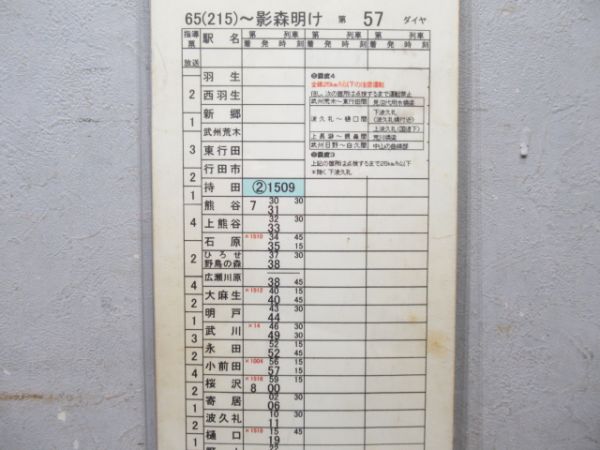 65(215)～影森明け 第 57 ダイヤ
指導票 駅 名 第 列車 第 列車 第 列車
放送 着 発 時 刻 着 発 時 刻 着 発 時 刻
羽 生
2
西羽生
1
新 郷
武州荒木
3
東行田
行田市
2
持 田 ②1509
1
熊 谷 7 30 30
31
上熊谷 32 30
4 33
石 原 ×1510 34 45
35 15
ひろせ野鳥の森 37 30
2 38
広瀬川原
38 45
4
大麻生 ×1512 40 15
40 45
2
明 戸 43 30
44
3
武 川 ×14 46 30
49 30
2
永 田 52 15
52 45
2
小前田 ×1004 56 15
57 15
2
桜 沢 ×1516 59 15
8 00
1
寄 居 02 30
06
3
波久礼 10 30
11
2
樋 口 ×1518 15 45
19
1
22
❷震度４
全線25km/h以下の注意運転
但し、次の箇所は点検するまで運転禁止
武州荒木～東行田間 見沼代用水橋梁
波久礼～樋口間 下波久礼
(波久礼構付近)
上波久礼(国道下)
上長瀞～親鼻間 荒川橋梁
武州日野～白久間 中山の曲線部
上記の箇所は点検するまで25km/h以下
＊除く下波久礼